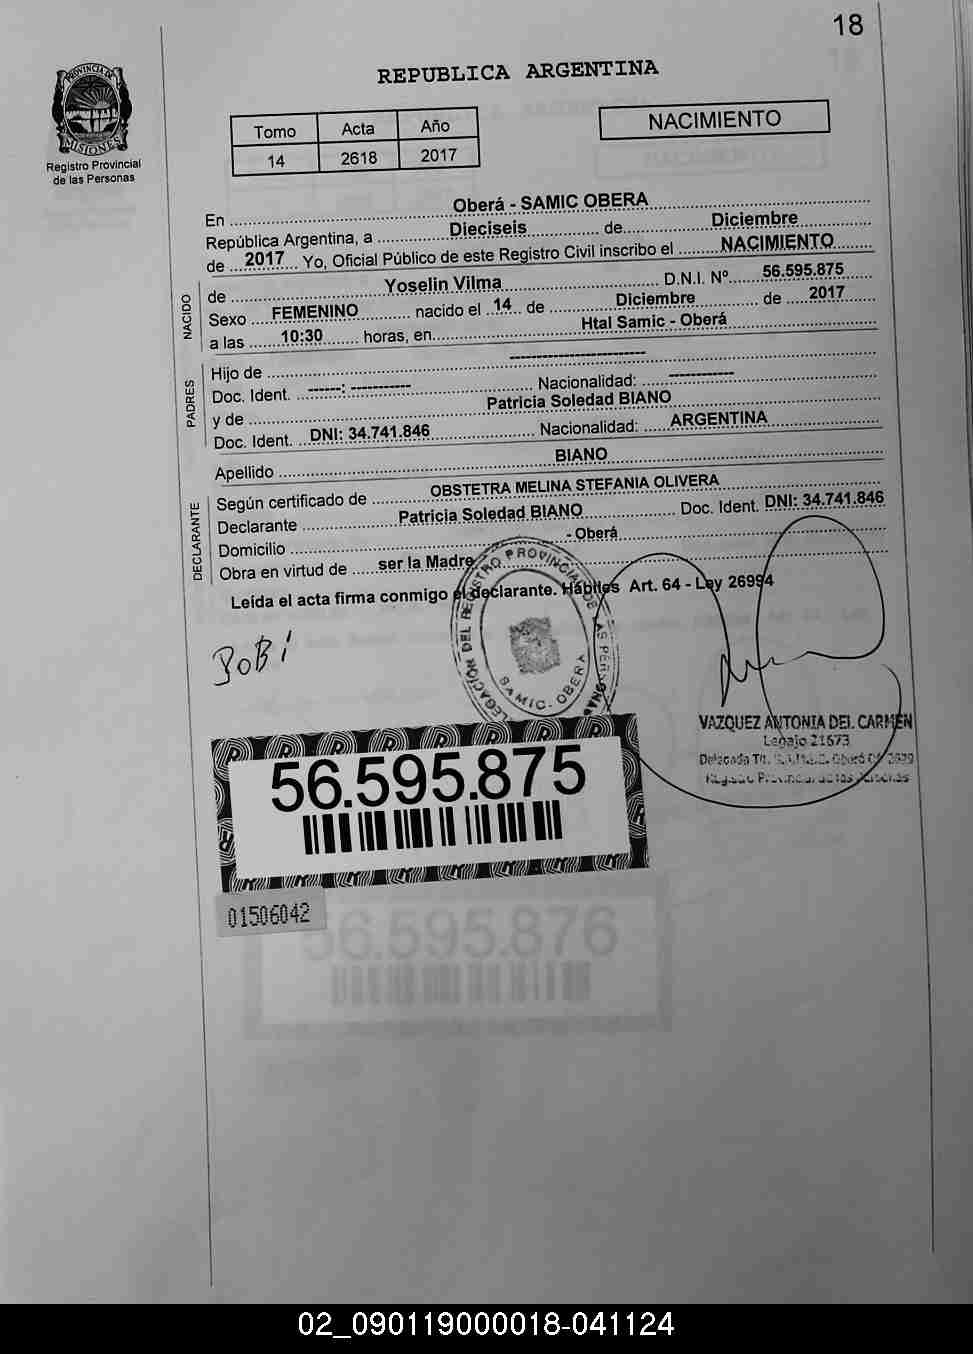 18
PROVINCIA DE
MISIONES
Registro Provincial
de las Personas
REPUBLICA ARGENTINA
Tomo Acta Año
14 2618 2017
NACIMIENTO
En Oberá - SAMIC OBERA
República Argentina, a Dieciseis de Diciembre
de 2017 Yo, Oficial Público de este Registro Civil inscribo el NACIMIENTO
NACIDO
de Yoselin Vilma D.N.I. Nº 56.595.875
Sexo FEMENINO nacido el 14 de Diciembre de 2017
a las 10:30 horas, en Htal Samic - Oberá
PADRES
Hijo de -------------------------
Doc. Ident. ------: ----------- Nacionalidad: ------------
y de Patricia Soledad BIANO
Doc. Ident. DNI: 34.741.846 Nacionalidad: ARGENTINA
Apellido BIANO
DECLARANTE
Según certificado de OBSTETRA MELINA STEFANIA OLIVERA
Declarante Patricia Soledad BIANO Doc. Ident. DNI: 34.741.846
Domicilio - Oberá
Obra en virtud de ser la Madre
Leída el acta firma conmigo el declarante. Hábiles Art. 64 - Ley 26994
DELEGACIÓN DEL REGISTRO PROVINCIAL DE LAS PERSONAS
SAMIC - OBERA
VAZQUEZ ANTONIA DEL CARMEN
Legajo 21673
Delegada Tit. S.A.M.I.C. Oberá
Registro Provincial de las Personas
56.595.875
01506042
56.595.876
02_090119000018-041124